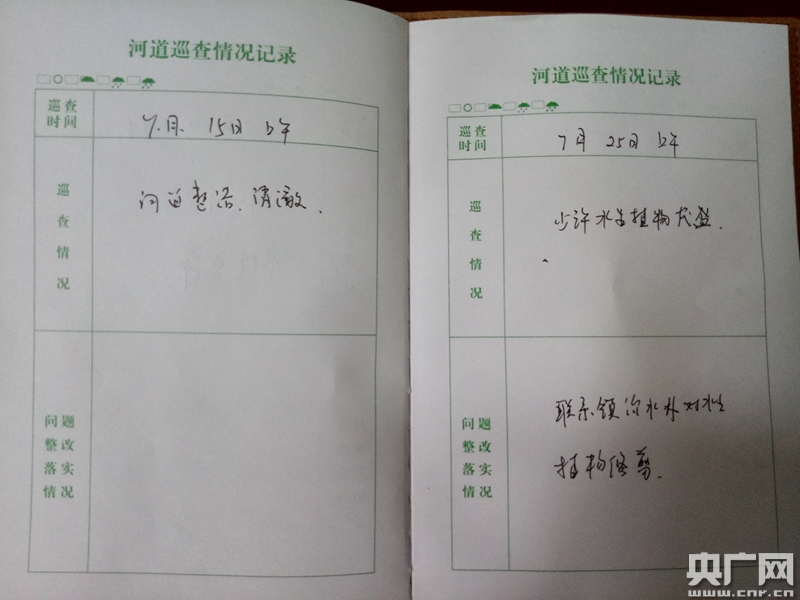 河道巡查情况记录
巡查
时间
7月 15日 上午
巡
查
情
况
河道整洁、清澈.
问题
整改
落实
情况
河道巡查情况记录
巡查
时间
7月 25日 上午
巡
查
情
况
少许水生植物茂盛.
问题
整改
落实
情况
联系镇治水办对水生
植物修剪.
央广网
www.cnr.cn